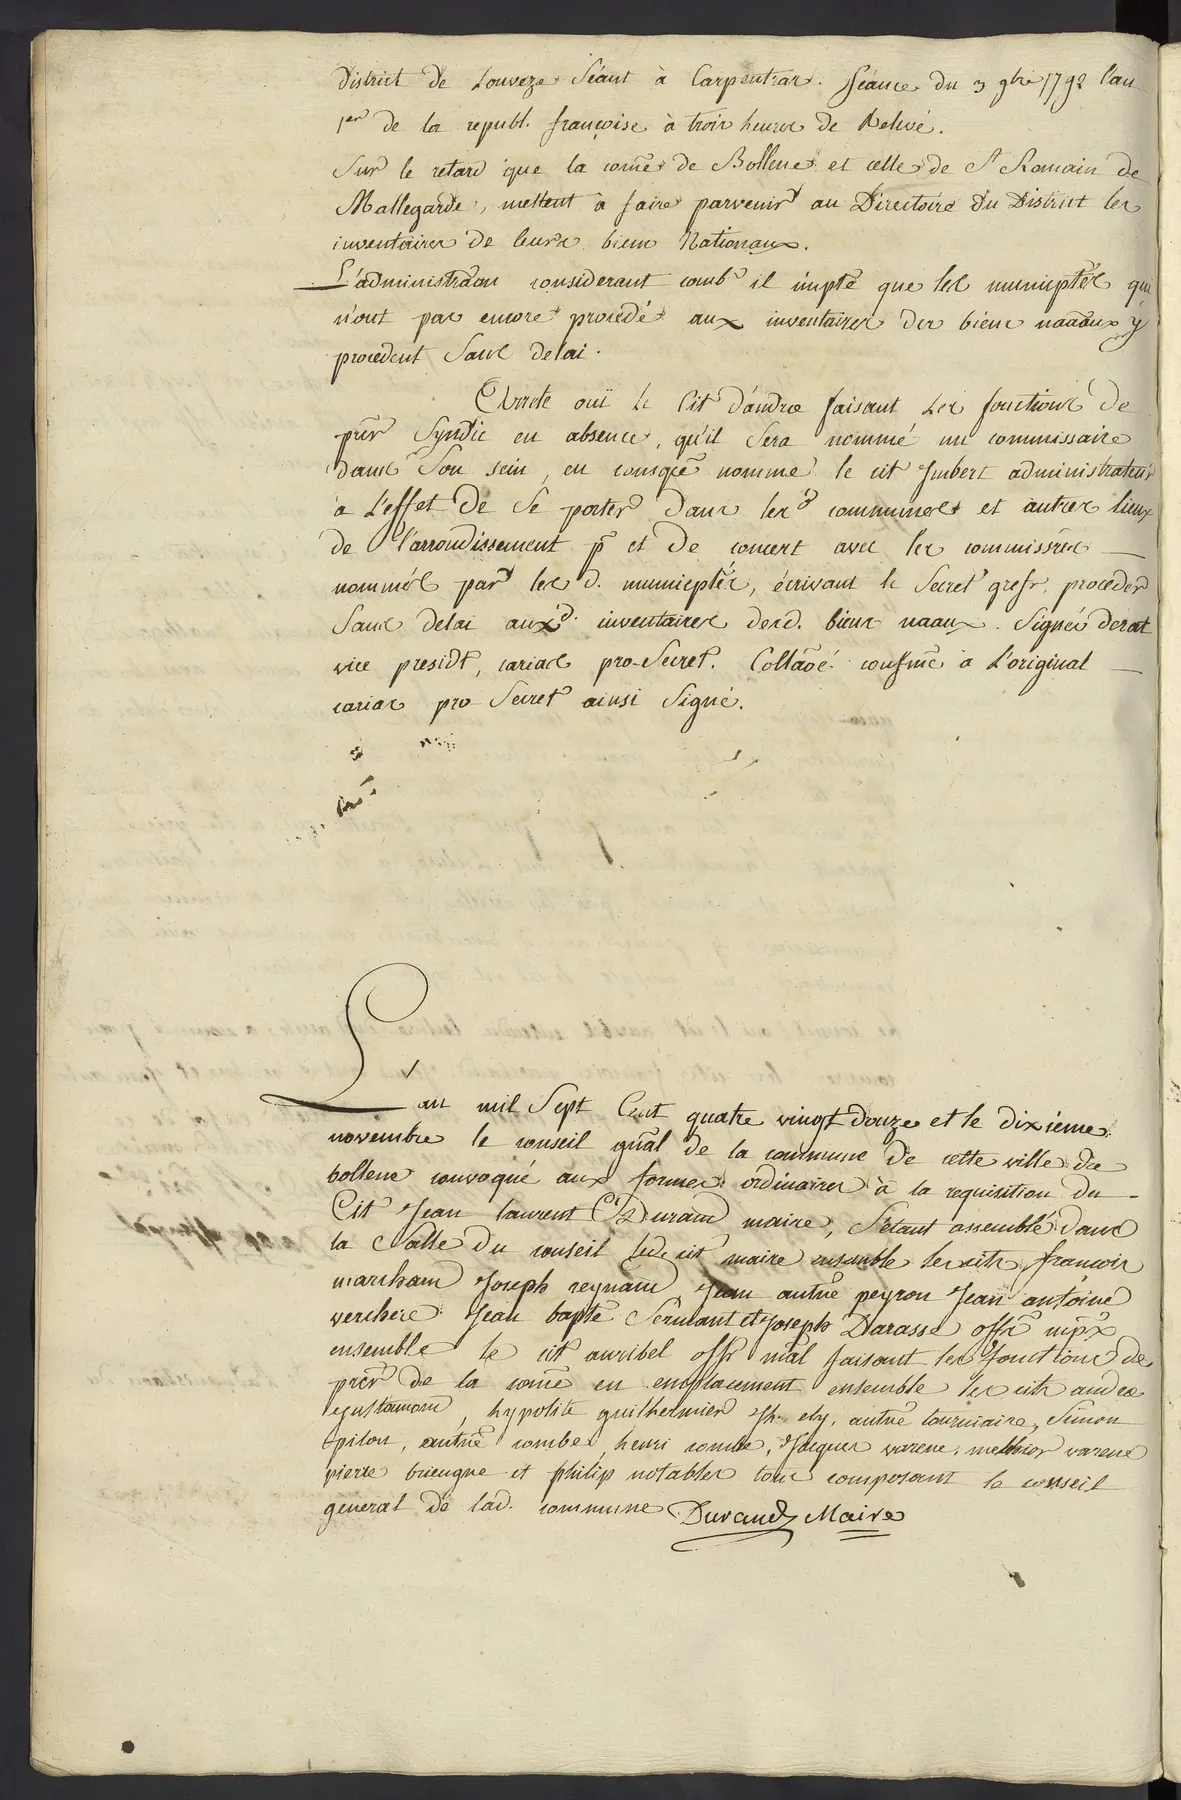 District de Louveze Séant à Carpentras. Séance du 3 9bre 1792 l'an
1er de la republ. françoise à trois heures de Relevé.
Sur le retard que la come de Bollene et celle de St Romain de
Mallegarde, mettent à faire parvenir au Directoire du District les
inventaires de leurs biens Nationaux.
L'administraon considerant comb. il impte que les municiptés qui
n'ont pas encore procédé aux inventaires des biens naaux y
procedent Sans delai.
Arrete oui le Cit d'andré faisant les fonctions de
pr Syndic en absence, qu'il Sera nommé un commissaire
dans Son sein, en consqce nomme le cit Imbert administrateur
à L'effet de Se porter dans lesd communes et autres lieux
de l'arrondissement p et de concert avec les commissres
nommés par les d. municiptés, écrivant le Secret grefr. proceder
Sans delai auxd. inventaires desd. biens naaux. Signés
vice presidt, cariac pro-Secret. Collaoé confme à L'original
cariac pro Secret ainsi Signé.
L'an mil Sept Cent quatre vingt douze et le dixiéme
novembre le conseil gnal de la commune de cette ville de
bollene convoqué aux formes ordinaires à la requisition du
Cit Jean laurent Durand maire, S'etant assemblé dans
la Salle du conseil led cit maire ensemble les cits françois
marchand Joseph reynaud Jean antne peyron Jean antoine
verchere Jean bapte Sermant et Joseph Darasse offrs mpx
ensemble le cit auribel offr mal faisant les fonctions de
pr de la come en emplacement ensemble les cits andré
, hypolite guilhermier Jh. ely, antne tourniaire, Simon
pilon, antne combe, henri combe, Jacques varene, melchior varene
pierre brieugne et philip notables tous composant le conseil
general de lad. commune Durand Maire